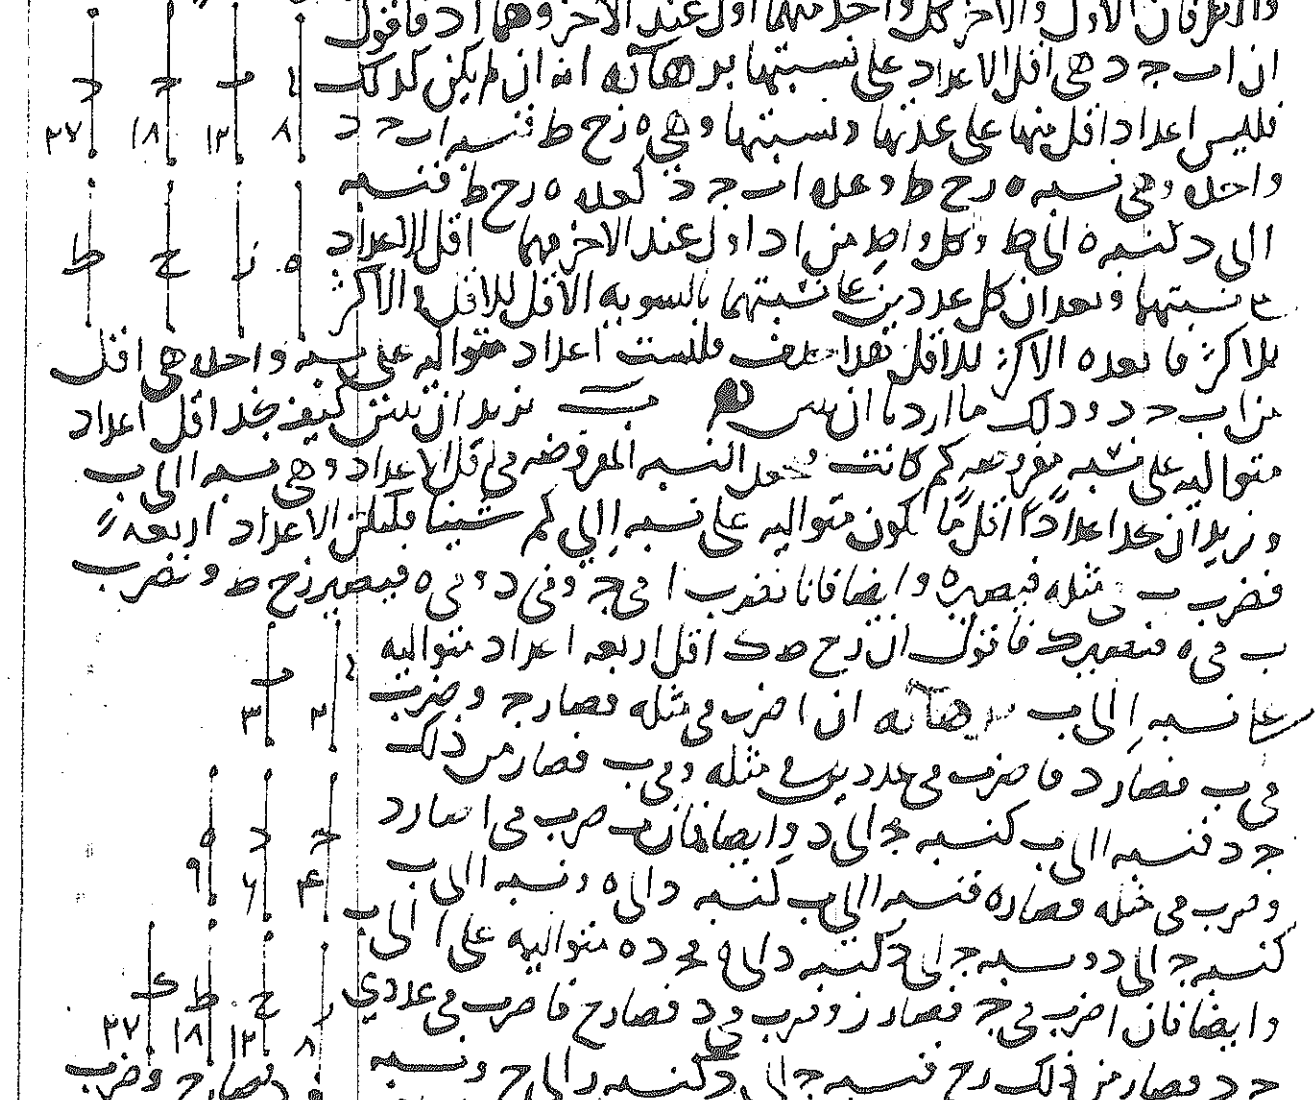 والطرفان الاول والاخر كل واحد منهما اول عند الاخر وهما ا د فاقول
ان ا ب ج د هى اقل الاعداد على نسبتها برهانه انه ان لم يكن كذلك
فليس اعداد اقل منها على عدتها ونسبتها وهى ه ز ح ط فنسبه ا ب ج د
واحده وهى نسبه ه ز ح ط وعده ا ب ج د كعده ه ز ح ط فنسبه ا
الى د كنسبه ه الى ط وكل واحد من ا د اول عند الاخر فهما اقل الاعداد
على نسبتها وبعدان كل عددين على نسبتهما بالسويه الاقل للاقل والاكثر
للاكثر فا بعد ه الاكثر للاقل هذا خلف فليست اعداد متواليه على نسبه واحده هى اقل
من ا ب ج د وذلك ما اردنا ان نبين ب نريد ان نبين كيف نجد اقل اعداد
متواليه على نسبه مفروضه كم كانت فنجعل النسبه المفروضه فى اقل الاعداد وهى نسبه ا الى ب
ونريد ان نجد اعدادا اقل ما تكون متواليه على نسبه ا الى ب كم شينا فليكن الاعداد اربعه
فنضرب ب فى مثله فيصير ه وايضا فانا نضرب ا فى ج وفى د وفى ه فيصير ز ح ط ونضرب
ب فى ه فيصير ك فاقول ان ز ح ط ك اقل اربعه اعداد متواليه
على نسبه ا الى ب برهانه ان ا ضرب فى مثله فصار ج وضرب
فى ب فصار د فا ضرب فى عددين فى مثله وفى ب فصار من ذلك
ج د فنسبه ا الى ب كنسبه ج الى د وايضا فان ب ضرب فى ا صار د
وضرب فى مثله فصار ه فنسبه ا الى ب كنسبه د الى ه ونسبه ا الى ب
كنسبه ج الى د ونسبه ج الى د كنسبه د الى ه فج د ه متواليه على ا الى ب
وايضا فان ا ضرب فى ج فصار ز وضرب فى د فصار ح فا ضرب فى عددي
ج د فصار من ذلك ز ح فنسبه ج الى د كنسبه ز الى ح ونسبه
ا ب ج د
٨ ١٢ ١٨ ٢٧
ه ز ح ط
ا ب
٢ ٣
ج د ه
۴ ٦ ٩
ز ح ط ك
٨ ١٢ ١٨ ٢٧